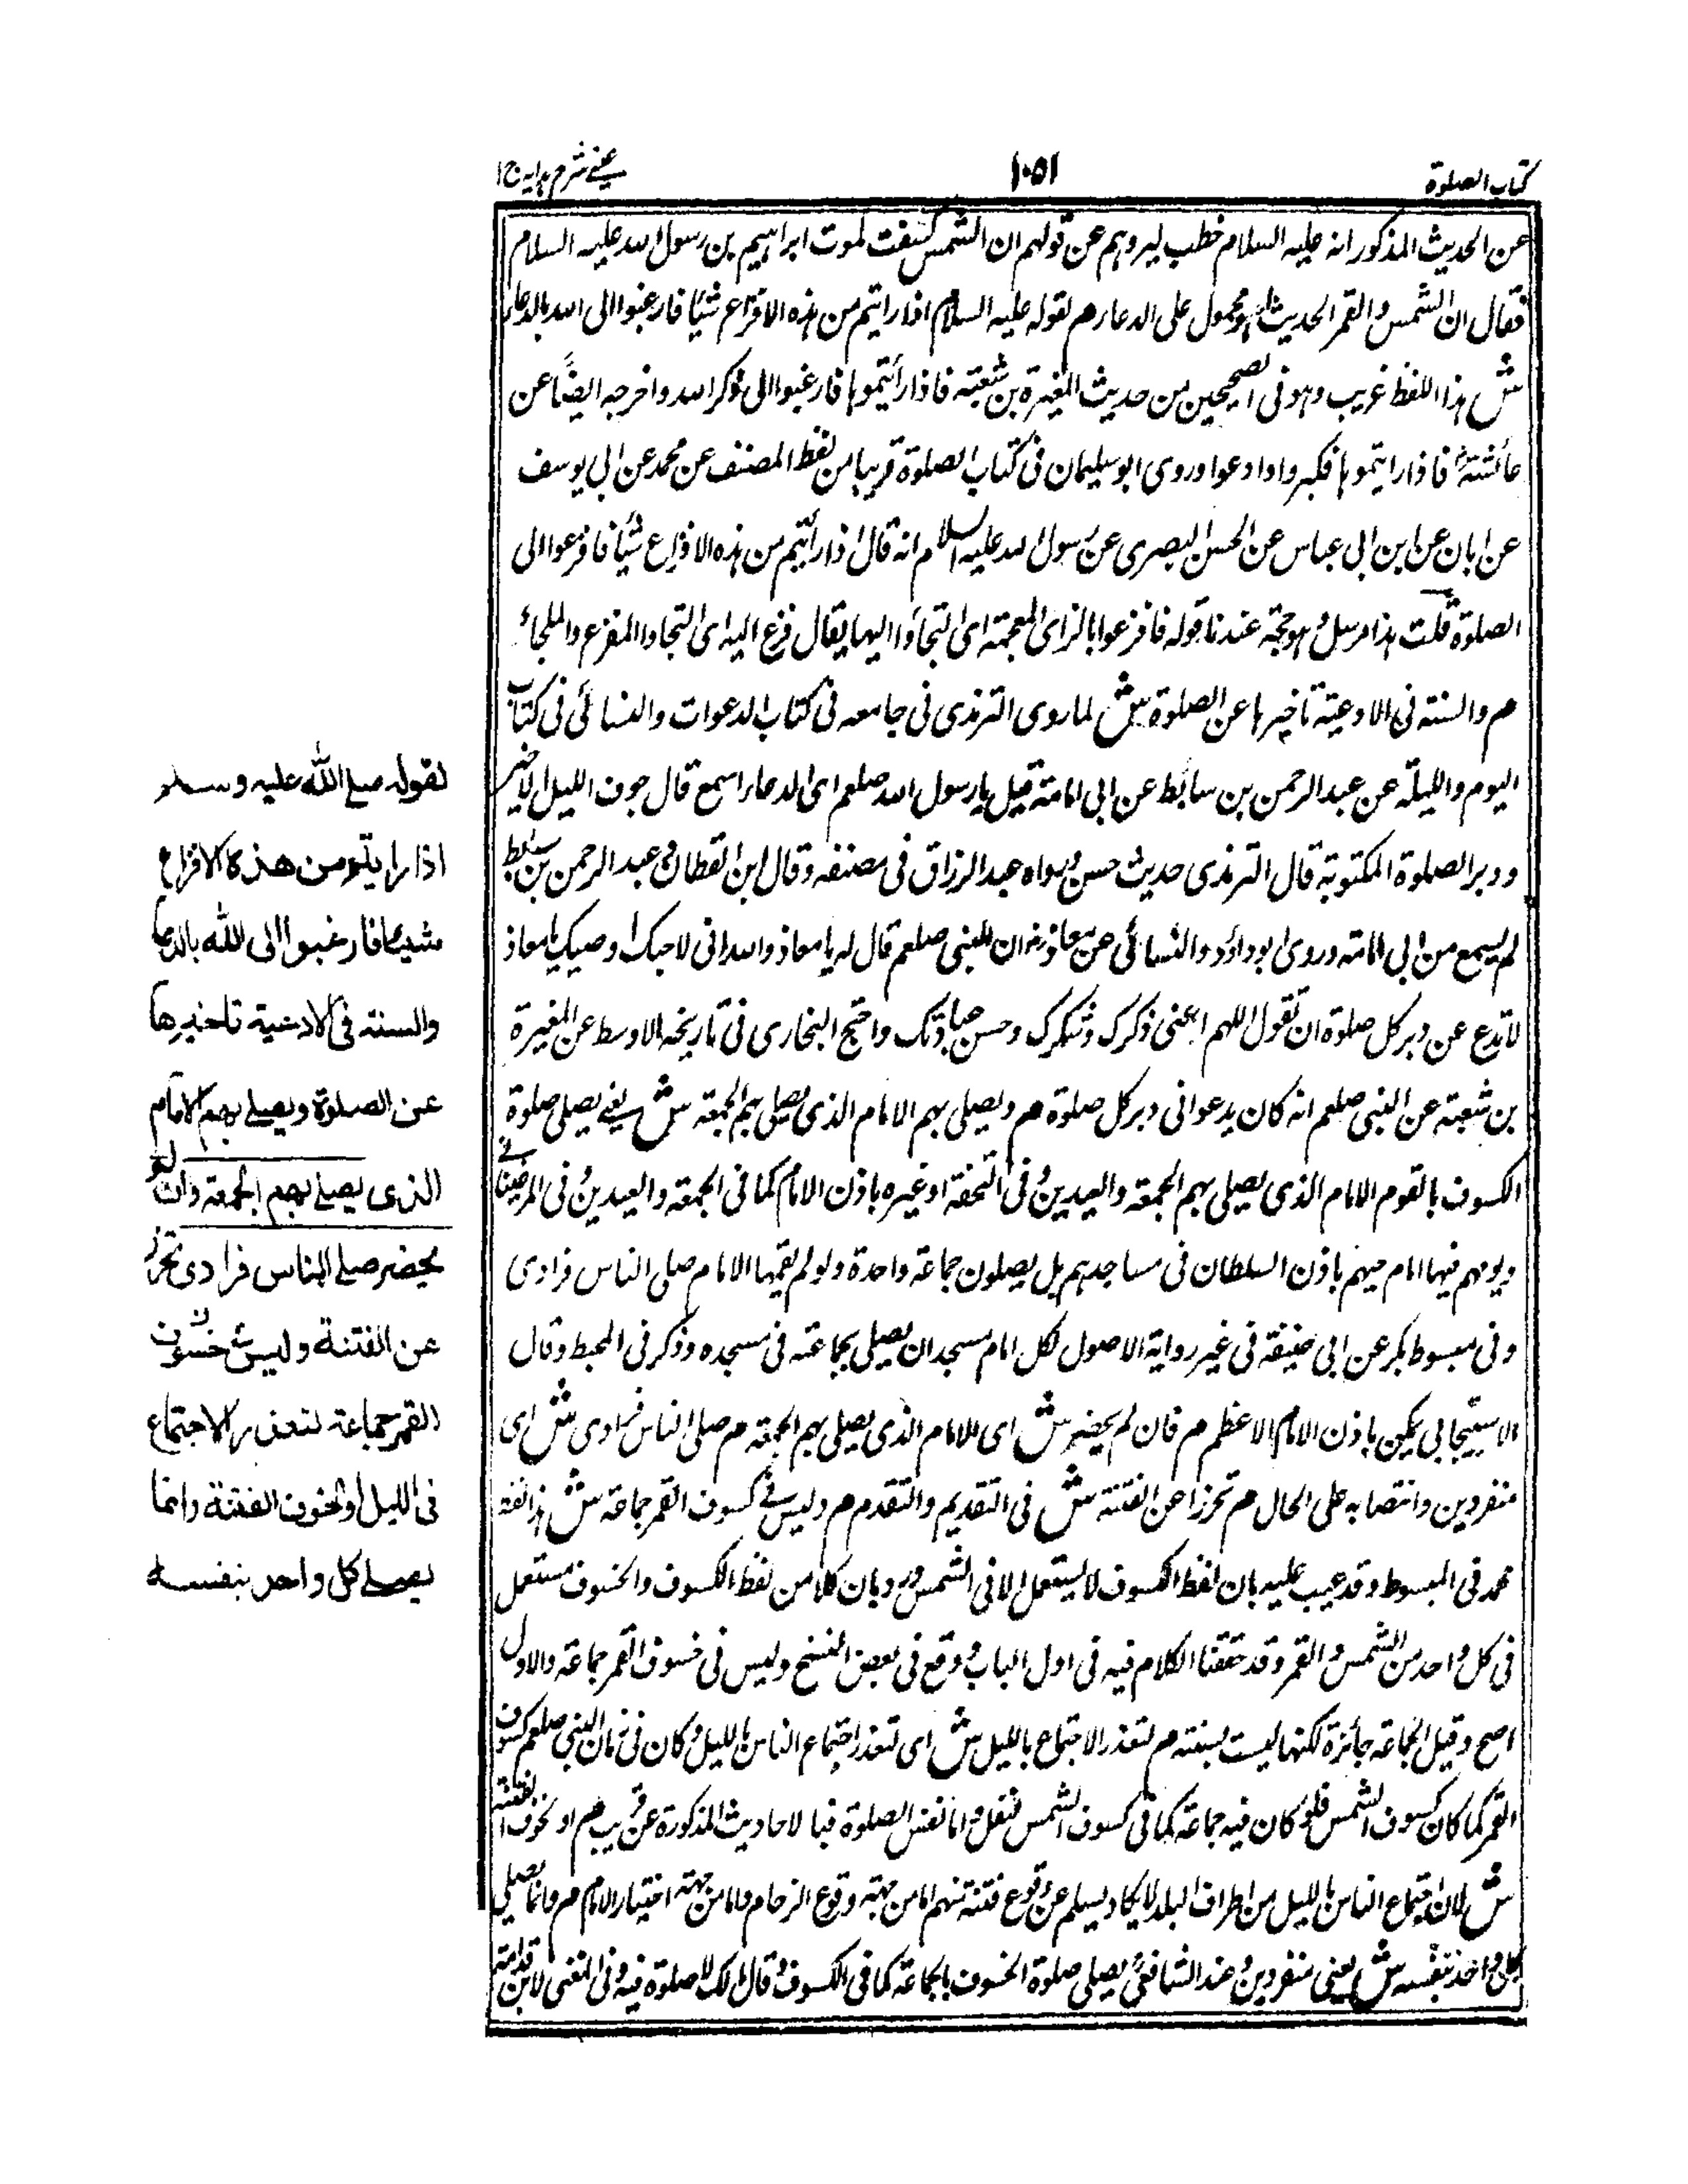 كتاب الصلوة
١٠٥١
عينے شرح ہدایہ ج١
عن الحديث المذكور انه عليه السلام خطب ليردهم عن قولهم ان الشمس كسفت لموت ابراهيم بن رسول الله عليه السلام
فقال ان الشمس والقمر الحديث او هو محمول على الدعاء م لقوله عليه السلام اذا رايتم من هذه الافزاع شيئا فارغبوا الى الله بالدعاء
ش هذا اللفظ غريب وهو فى الصحيحين من حديث المغيرة بن شعبة فاذا رأيتموها فارغبوا الى ذكر الله واخرجه ايضًا عن
عائشة فاذا رايتموها فكبروا وادعوا وروى ابو سليمان فى كتاب الصلوة قريبا من لفظ المصنف عن محمد عن ابى يوسف
عن ابان عن ابن ابى عباس عن الحسن البصرى عن رسول الله عليه السلام انه قال اذا رأيتم من هذه الافزاع شيئا فافزعوا الى
الصلوة قلت هذا مرسل وهو حجة عندنا قوله فافزعوا بالزاى المعجمة اى التجاؤا اليها يقال فزع اليه اى التجا والمفزع والملجاء
م والسنة فى الادعية تاخيرها عن الصلوة ش لما روى الترمذى فى جامعه فى كتاب الدعوات والنسائى فى كتاب
اليوم والليلة عن عبد الرحمن بن سابط عن ابى امامة قيل يا رسول الله صلعم اى الدعاء اسمع قال جوف الليل الاخير
ودبر الصلوة المكتوبة قال الترمذى حديث حسن ورواه عبد الرزاق فى مصنفه وقال ابن القطان وعبد الرحمن بن سابط
لم يسمع من ابى امامة وروى ابو داؤد والنسائى عن معاذ ان النبى صلعم قال له يا معاذ والله انى لاحبك اوصيك يا معاذ
لا تدع عن دبر كل صلوة ان تقول اللهم اعنى ذكرك وشكرك وحسن عبادتك واحتج البخارى فى تاريخه الاوسط عن المغيرة
بن شعبة عن النبى صلعم انه كان يدعو فى دبر كل صلوة م ويصلى بهم الامام الذى يصلى بهم الجمعة ش يعنے يصلى صلوة
الكسوف بالقوم الامام الذى يصلى بهم الجمعة والعيدين وفى التحفة او غيره باذن الامام كما فى الجمعة والعيدين وفى المرغينانے
ويومهم فيها امام حيهم باذن السلطان فى مساجدهم بل يصلون جماعة واحدة ولو لم يقمها الامام صلى الناس فرادى
وفى مبسوط بكر عن ابى حنيفة فى غير رواية الاصول لكل امام مسجد ان يصلى بجماعته فى مسجده وذكر فى المحيط وقال
الاسبيجابى يمكن باذن الامام الاعظم م فان لم يحضر ش اى الامام الذى يصلى بهم الجمعة م صلى الناس فرادى ش اى
منفردين وانتصابه على الحال م تحرزا عن الفتنة ش فى التقديم والتقدم م وليس فے كسوف القمر جماعة ش هذا لفظ
محمد فى المبسوط وقد عيب عليه بان لفظ الكسوف لا يستعمل الا فى الشمس ورد بان كلا من لفظ الكسوف والخسوف مستعمل
فى كل واحد من الشمس والقمر وقد حققنا الكلام فيه فى اول الباب ووقع فى بعض النسخ وليس فى خسوف القمر جماعة والاول
اصح وقيل الجماعة جائزة لكنها ليست بسنة م لتعذر الاجتماع بالليل ش اى لتعذر اجتماع الناس بالليل وكان فى زمان النبى صلعم كسوف
القمر كما كان كسوف الشمس فلو كان فيه جماعة كما فى كسوف الشمس لنقل واما نفس الصلوة فبالاحاديث المذكورة عن قريب م او لخوف الفتنة
ش لان اجتماع الناس بالليل من اطراف البلد لا يكاد يسلم عن وقوع فتنة منهم اما من جهة وقوع الزحام واما من جهة اختيار الامام م وانما يصلى
كل واحد بنفسه ش يعنى منفردين وعند الشافعى يصلى صلوة الخسوف بالجماعة كما فى الكسوف وقال مالك لا صلوة فيه وفى المغنى لابن قدامة
لقوله صلے الله عليه وسلم
اذا رايتم من هذه الافزاع
شيئا فارغبوا الى الله بالدعا
والسنة فى الادعية تاخيرها
عن الصلوة ويصلے بهم الامام
الذى يصلے بهم الجمعة وان لم
يحضر صلے الناس فرادى تحرزا
عن الفتنة وليس فى خسوف
القمر جماعة لتعذر الاجتماع
فى الليل او لخوف الفتنة وانما
يصلے كل واحد بنفسه